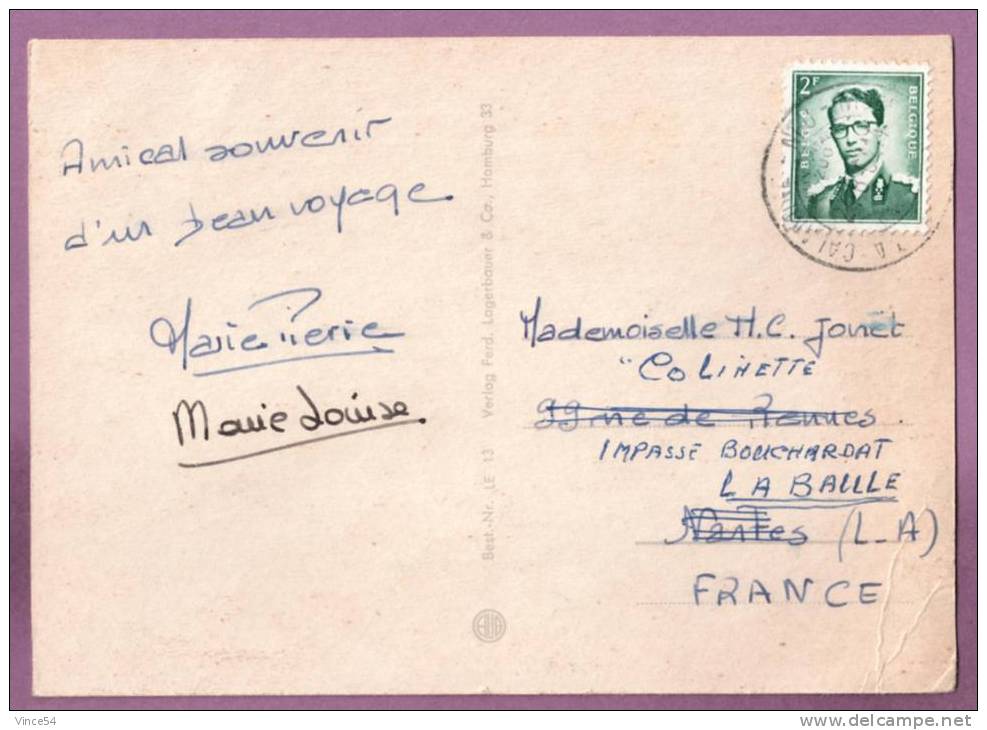 Amical souvenir
d'un beau voyage
Marie Pierre
Marie Louise
Best.-Nr. LE 13 Verlag Ferd. Lagerbauer & Co., Hamburg 33
2F
BELGIE BELGIQUE
Mademoiselle H.C. Jouet
"COLINETTE
99 rue de Rennes
IMPASSE BOUCHARDAT
LA BAULE
Nantes (L-A)
FRANCE
Vince54
www.delcampe.net